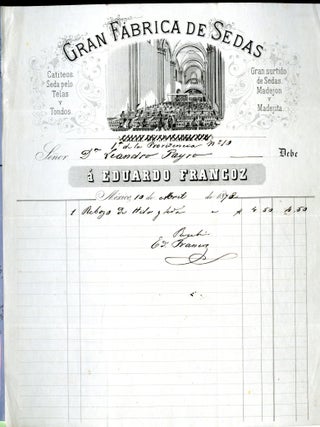 GRAN FÁBRICA DE SEDAS
Catiteos
Seda pelo
Telas
y
Tondos.
Gran surtido
de Sedas.
Madejon
y
Madejita.
1ª de la Providencia Nº 10
Señor Dn Leandro Payro Debe
á EDUARDO FRANCOZ
México, 10 de Abril de 187
1 Rebozo de Hilo y Seda $ 4 50 4 50
Recibí
Ed. Francoz